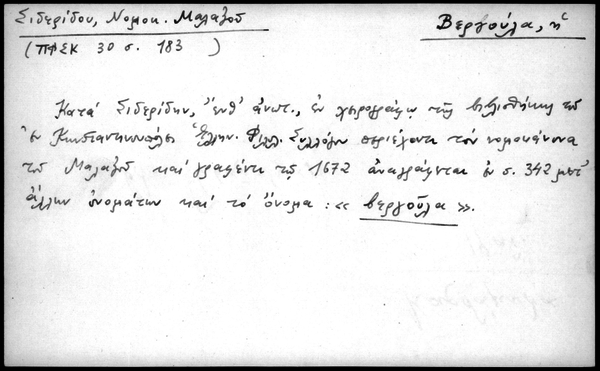 Σιδερίδου, Νομοκ. Μαλαξοῦ
Βεργούλα, ἡ
(ΠΦΣΚ 30 σ. 183 )
Κατά Σιδερίδην, ἔνθ' ἀνωτ., ἐν χειρογράφῳ τῆς βιβλιοθήκης τοῦ
ἐν Κωνσταντινουπόλει Ἑλλην. Φιλολ. Συλλόγου περιέχοντι τόν νομοκάνονα
τοῦ Μαλαξοῦ καί γραφέντι τῷ 1672 ἀναγράφεται ἐν σ. 342 μετ'
ἄλλων ὀνομάτων καί τό ὄνομα : « βεργοῦλα ».